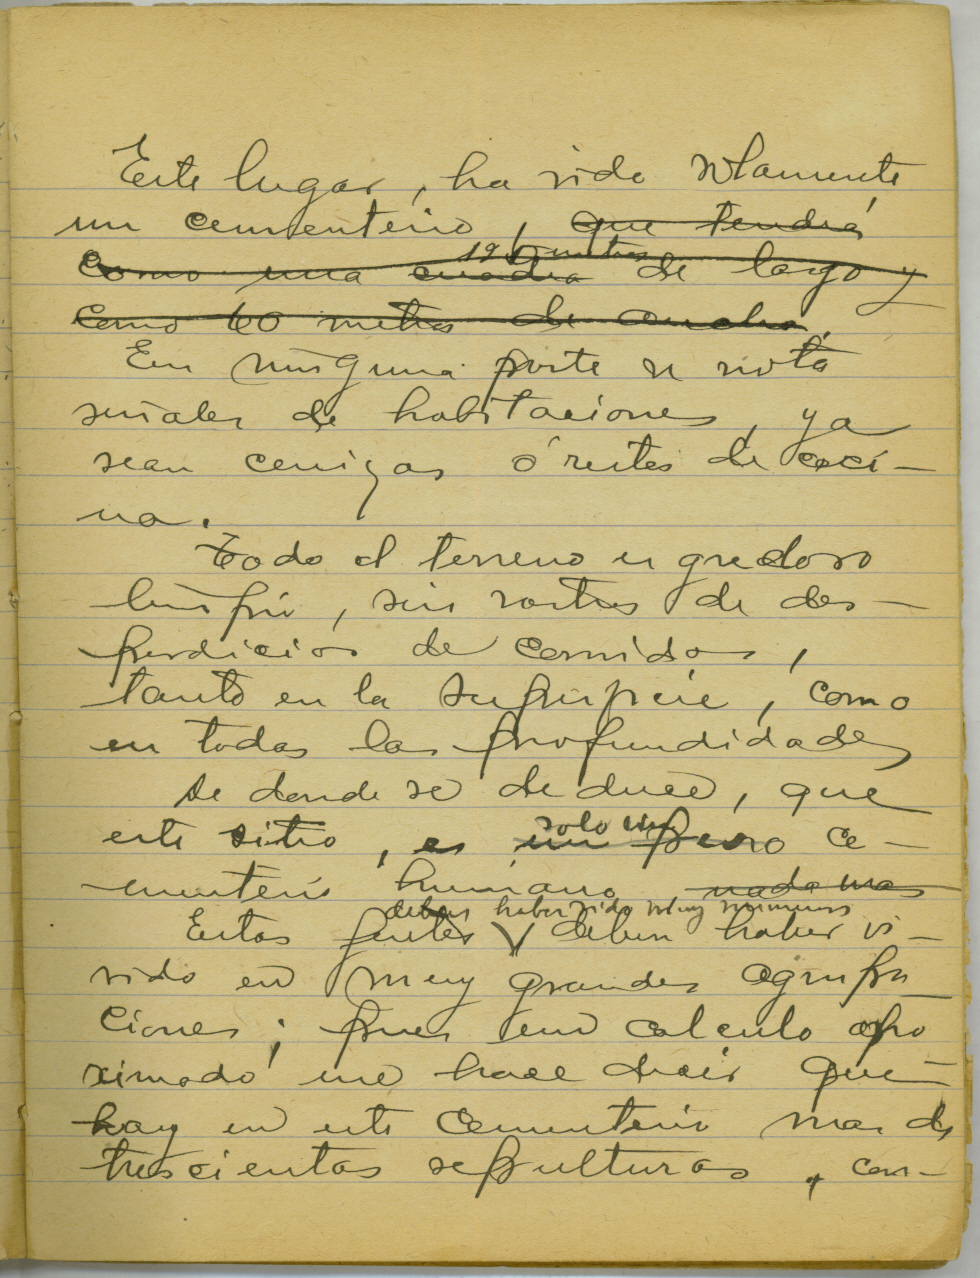 Este lugar, ha sido solamente
un cementerio, que tendrá
metros
como una cuadra de largo y
como 60 metros de ancho.
En ninguna parte se nota
señales de habitaciones, ya
sean cenizas ó restos de coci-
na.
Todo el terreno es gredoso
limpio, sin rastros de des-
perdicios de comidas,
tanto en la superficie, como
en todas las profundidades
de donde se deduce, que
solo un
este sitio, es un puro ce-
menterio humano nada mas
deben haber sido muy numerosos
Estas gentes deben haber vi-
vido en muy grandes agrupa
ciones; pues un calculo apro
ximado me hace decir que
hay en este cementerio mas de
trescientas sepulturas, con-